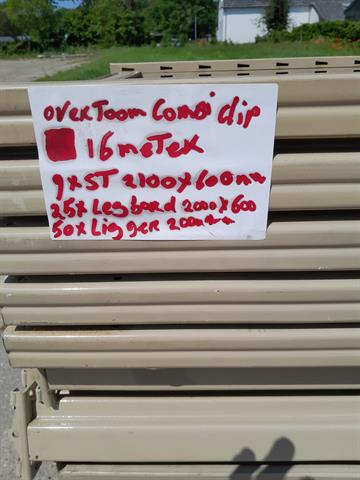 overtoom Combi clip
16 meter
9xST 2100x600mm
25x Legbord 2000x600
50x Ligger 200mm